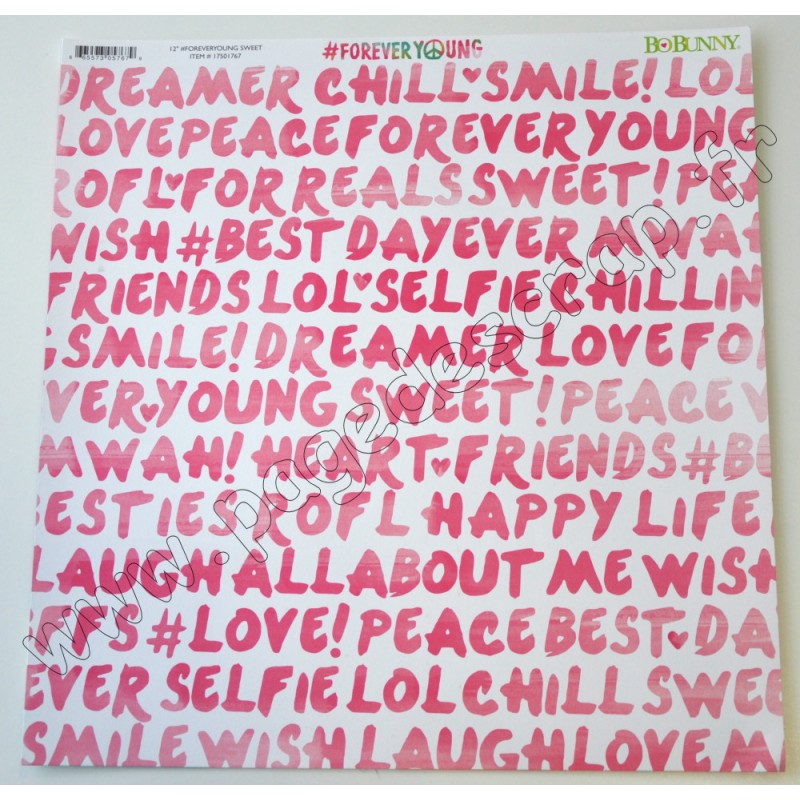 12" #FOREVERYOUNG SWEET
ITEM # 17501767
#FOREVERYOUNG
BOBUNNY
DREAMER CHILL♥SMILE! LOL
LOVE PEACE FOREVER YOUNG
ROFL♥FOR REALS SWEET! PEA
WISH #BEST DAY EVER MWAH
FRIENDS LOL♥SELFIE CHILLIN
SMILE! DREAMER LOVE FO
VER♥YOUNG SWEET! PEACE
MWAH! HEART♥FRIENDS #B
ESTIES ROFL HAPPY LIFE
LAUGH ALL ABOUT ME WISH
BFFS #LOVE! PEACE BEST♥DA
EVER SELFIE LOL CHILL SWEE
SMILE WISH LAUGH LOVE M
www.pagedescrap.fr